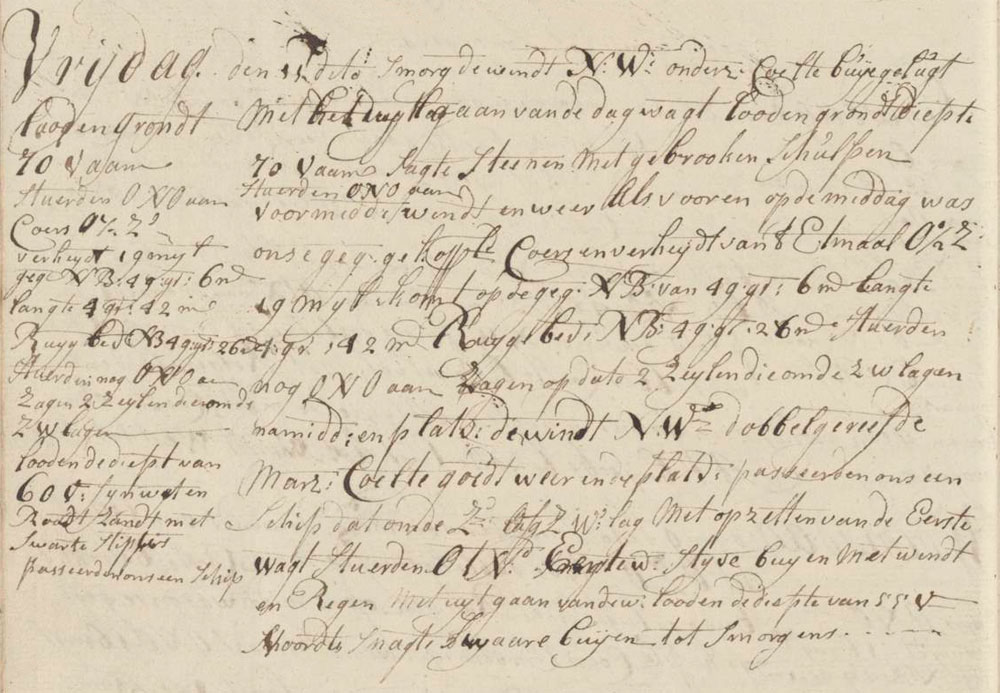 Vrijdag den 11 dito Smorg de windt N: W: onderz: Coelte buyegelugt
looden grondt
70 vaam
Stuerden ONO aan
Coers O½Z:
verheydt 19 myl
gegs NB: 49 gr: 6 md
langte 4 gr: 42 md
Ruyg bed NB 49 gr: 26 md
Stuerden nog ONO aan
Zagen 2 Zeylen die om de
ZW lagen
looden de diept van
60 V: fyn wit en
Roodt Zandt met
Swarte Stippis
passeerden ons een Schip
Met het uytgaan van de dagwagt looden grondt diepte
70 vaam sagte Steenen met gebrooken Schulpen
Stuerden ONO aan
voormidd: windt en weer Als vooren op de middag was
onse geg: gekopp: Coers en verheydt van 't Etmaal O½Z:
19 myl komt op de geg: NB: van 49 gr: 6 md langte
4 gr: 42 md Ruygs bed: NB: 49 gr: 26 md Stuerden
nog ONO aan Zagen op dato 2 Zeylen die om de ZW lagen
namidd: en platv: de windt N: W: dobbel gereefde
Marz: Coelte goedt weer in de platv: passeerden ons een
Schip dat om de Z: W: lag Met op zetten van de Eerste
wagt Stuerden O t N: Eerste w: Styve buyen Met windt
en Regen Met uytgaan van de w: looden de diepte van 55 V
Snagts Swaare buyen tot Smorgens